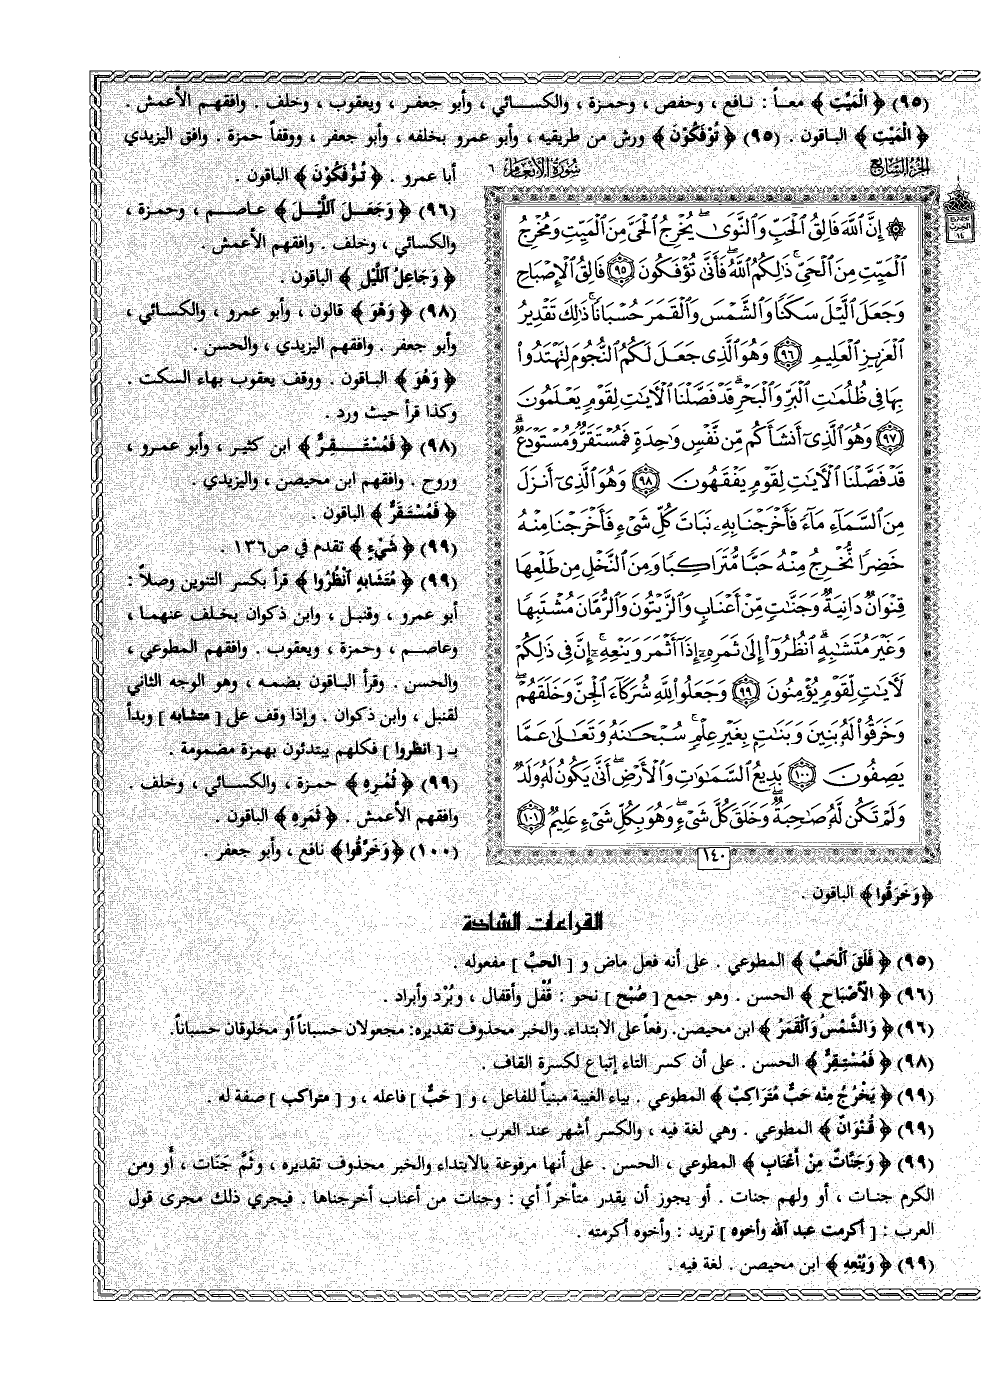 (٩٥) ﴿ الْمَيِّتِ ﴾ معاً : نافع ، وحفص ، وحمزة ، والكسائي ، وأبو جعفر ، ويعقوب ، وخلف . وافقهم الأعمش .
﴿ الْمَيْتِ ﴾ الباقون . (٩٥) ﴿ تُوْفَكُوْنَ ﴾ ورش من طريقيه ، وأبو عمرو بخلفه ، وأبو جعفر ، ووقفاً حمزة . وافق اليزيدي
أبا عمرو . ﴿ تُؤْفَكُوْنَ ﴾ الباقون .
(٩٦) ﴿ وَجَعَلَ اَللَّيْلَ ﴾ عاصم ، وحمزة ،
والكسائي ، وخلف . وافقهم الأعمش .
﴿ وَجَاعِلُ اَللَّيْلِ ﴾ الباقون .
(٩٨) ﴿ وَهْوَ ﴾ قالون ، وأبو عمرو ، والكسائي ،
وأبو جعفر . وافقهم اليزيدي ، والحسن .
﴿ وَهُوَ ﴾ الباقون . ووقف يعقوب بهاء السكت .
وكذا قرأ حيث ورد .
(٩٨) ﴿ فَمُسْتَقِرٌّ ﴾ ابن كثير ، وأبو عمرو ،
وروح . وافقهم ابن محيصن ، واليزيدي .
﴿ فَمُسْتَقَرٌّ ﴾ الباقون .
(٩٩) ﴿ شَيْءٍ ﴾ تقدم في ص١٣٦ .
(٩٩) ﴿ مُتَشَابِهٍ اَنْظُرُوا ﴾ قرأ بكسر التنوين وصلاً :
أبو عمرو ، وقنبل ، وابن ذكوان بخلف عنهما ،
وعاصم ، وحمزة ، ويعقوب . وافقهم المطوعي ،
والحسن . وقرأ الباقون بضمه ، وهو الوجه الثاني
لقنبل ، وابن ذكوان . وإذا وقف على [ متشابه ] وبدأ
بـ [ انظروا ] فكلهم يبتدئون بهمزة مضمومة .
(٩٩) ﴿ ثُمُرِهِ ﴾ حمزة ، والكسائي ، وخلف .
وافقهم الأعمش . ﴿ ثَمَرِهِ ﴾ الباقون .
(١٠٠) ﴿ وَخَرَّقُوا ﴾ نافع ، وأبو جعفر .
الجزء السابع
سورة الأنعام ٦
۞ إِنَّ اللَّهَ فَالِقُ الْحَبِّ وَالنَّوَىٰ ۖ يُخْرِجُ الْحَيَّ مِنَ الْمَيِّتِ وَمُخْرِجُ
الْمَيِّتِ مِنَ الْحَيِّ ۚ ذَٰلِكُمُ اللَّهُ ۖ فَأَنَّىٰ تُؤْفَكُونَ ٩٥ فَالِقُ الْإِصْبَاحِ
وَجَعَلَ اللَّيْلَ سَكَنًا وَالشَّمْسَ وَالْقَمَرَ حُسْبَانًا ۚ ذَٰلِكَ تَقْدِيرُ
الْعَزِيزِ الْعَلِيمِ ٩٦ وَهُوَ الَّذِي جَعَلَ لَكُمُ النُّجُومَ لِتَهْتَدُوا
بِهَا فِي ظُلُمَاتِ الْبَرِّ وَالْبَحْرِ ۗ قَدْ فَصَّلْنَا الْآيَاتِ لِقَوْمٍ يَعْلَمُونَ
٩٧ وَهُوَ الَّذِي أَنْشَأَكُمْ مِّن نَّفْسٍ وَاحِدَةٍ فَمُسْتَقَرٌّ وَمُسْتَوْدَعٌ ۗ
قَدْ فَصَّلْنَا الْآيَاتِ لِقَوْمٍ يَفْقَهُونَ ٩٨ وَهُوَ الَّذِي أَنزَلَ
مِنَ السَّمَاءِ مَاءً فَأَخْرَجْنَا بِهِ نَبَاتَ كُلِّ شَيْءٍ فَأَخْرَجْنَا مِنْهُ
خَضِرًا نُّخْرِجُ مِنْهُ حَبًّا مُّتَرَاكِبًا وَمِنَ النَّخْلِ مِن طَلْعِهَا
قِنْوَانٌ دَانِيَةٌ وَجَنَّاتٍ مِّنْ أَعْنَابٍ وَالزَّيْتُونَ وَالرُّمَّانَ مُشْتَبِهًا
وَغَيْرَ مُتَشَابِهٍ ۗ انظُرُوا إِلَىٰ ثَمَرِهِ إِذَا أَثْمَرَ وَيَنْعِهِ ۚ إِنَّ فِي ذَٰلِكُمْ
لَآيَاتٍ لِّقَوْمٍ يُؤْمِنُونَ ٩٩ وَجَعَلُوا لِلَّهِ شُرَكَاءَ الْجِنَّ وَخَلَقَهُمْ ۖ
وَخَرَقُوا لَهُ بَنِينَ وَبَنَاتٍ بِغَيْرِ عِلْمٍ ۚ سُبْحَانَهُ وَتَعَالَىٰ عَمَّا
يَصِفُونَ ١٠٠ بَدِيعُ السَّمَاوَاتِ وَالْأَرْضِ ۖ أَنَّىٰ يَكُونُ لَهُ وَلَدٌ
وَلَمْ تَكُن لَّهُ صَاحِبَةٌ ۖ وَخَلَقَ كُلَّ شَيْءٍ ۖ وَهُوَ بِكُلِّ شَيْءٍ عَلِيمٌ ١٠١
١٤٠
﴿ وَخَرَقُوا ﴾ الباقون .
القراءات الشاذة
(٩٥) ﴿ فَلَقَ اَلْحَبَّ ﴾ المطوعي . على أنه فعل ماض و [ الحبَّ ] مفعوله .
(٩٦) ﴿ الأَصْبَاحِ ﴾ الحسن . وهو جمع [ صُبْح ] نحو : قُفْل وأقفال ، وبُرْد وأبراد .
(٩٦) ﴿ وَالشَّمْسُ وَاَلْقَمَرُ ﴾ ابن محيصن. رفعاً على الابتداء. والخبر محذوف تقديره: مجعولان حسباناً أو مخلوقان حسباناً.
(٩٨) ﴿ فَمُسْتِقِرٌّ ﴾ الحسن . على أن كسر التاء إتباع لكسرة القاف .
(٩٩) ﴿ يَخْرُجُ مِنْه حَبٌّ مُتَرَاكِبٌ ﴾ المطوعي . بياء الغيبة مبنياً للفاعل ، و [ حَبٌّ ] فاعله ، و [ متراكب ] صفة له .
(٩٩) ﴿ قُنْوَانٌ ﴾ المطوعي . وهي لغة فيه ، والكسر أشهر عند العرب .
(٩٩) ﴿ وَجَنَّاتٌ مِنْ أَعْنَابٍ ﴾ المطوعي ، الحسن . على أنها مرفوعة بالابتداء والخبر محذوف تقديره ، وثَمَّ جَنَات ، أو ومن
الكرم جنات ، أو ولهم جنات . أو يجوز أن يقدر متأخراً أي : وجنات من أعناب أخرجناها . فيجري ذلك مجرى قول
العرب : [ أكرمت عبد الله وأخوه ] تريد : وأخوه أكرمته .
(٩٩) ﴿ وَيُنْعِهِ ﴾ ابن محيصن . لغة فيه .